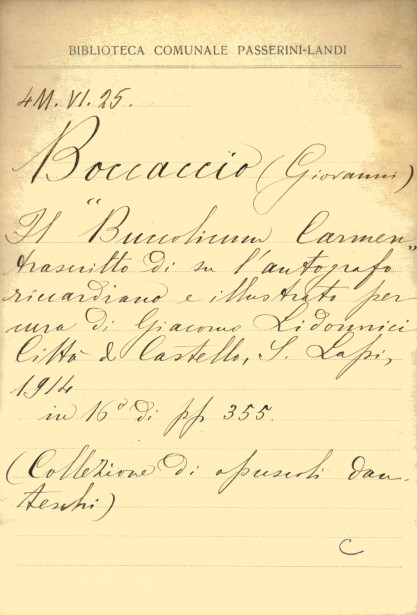 BIBLIOTECA COMUNALE PASSERINI-LANDI
4M. VI. 25.
Boccaccio (Giovanni)
Il "Buccolicum Carmen"
trascritto di su l'autografo
riccardiano e illustrato per
cura di Giacomo Lidonnici
Città di Castello, S. Lapi,
1914
in 16° di pp. 355.
(Collezione di opuscoli dan-
teschi)
C